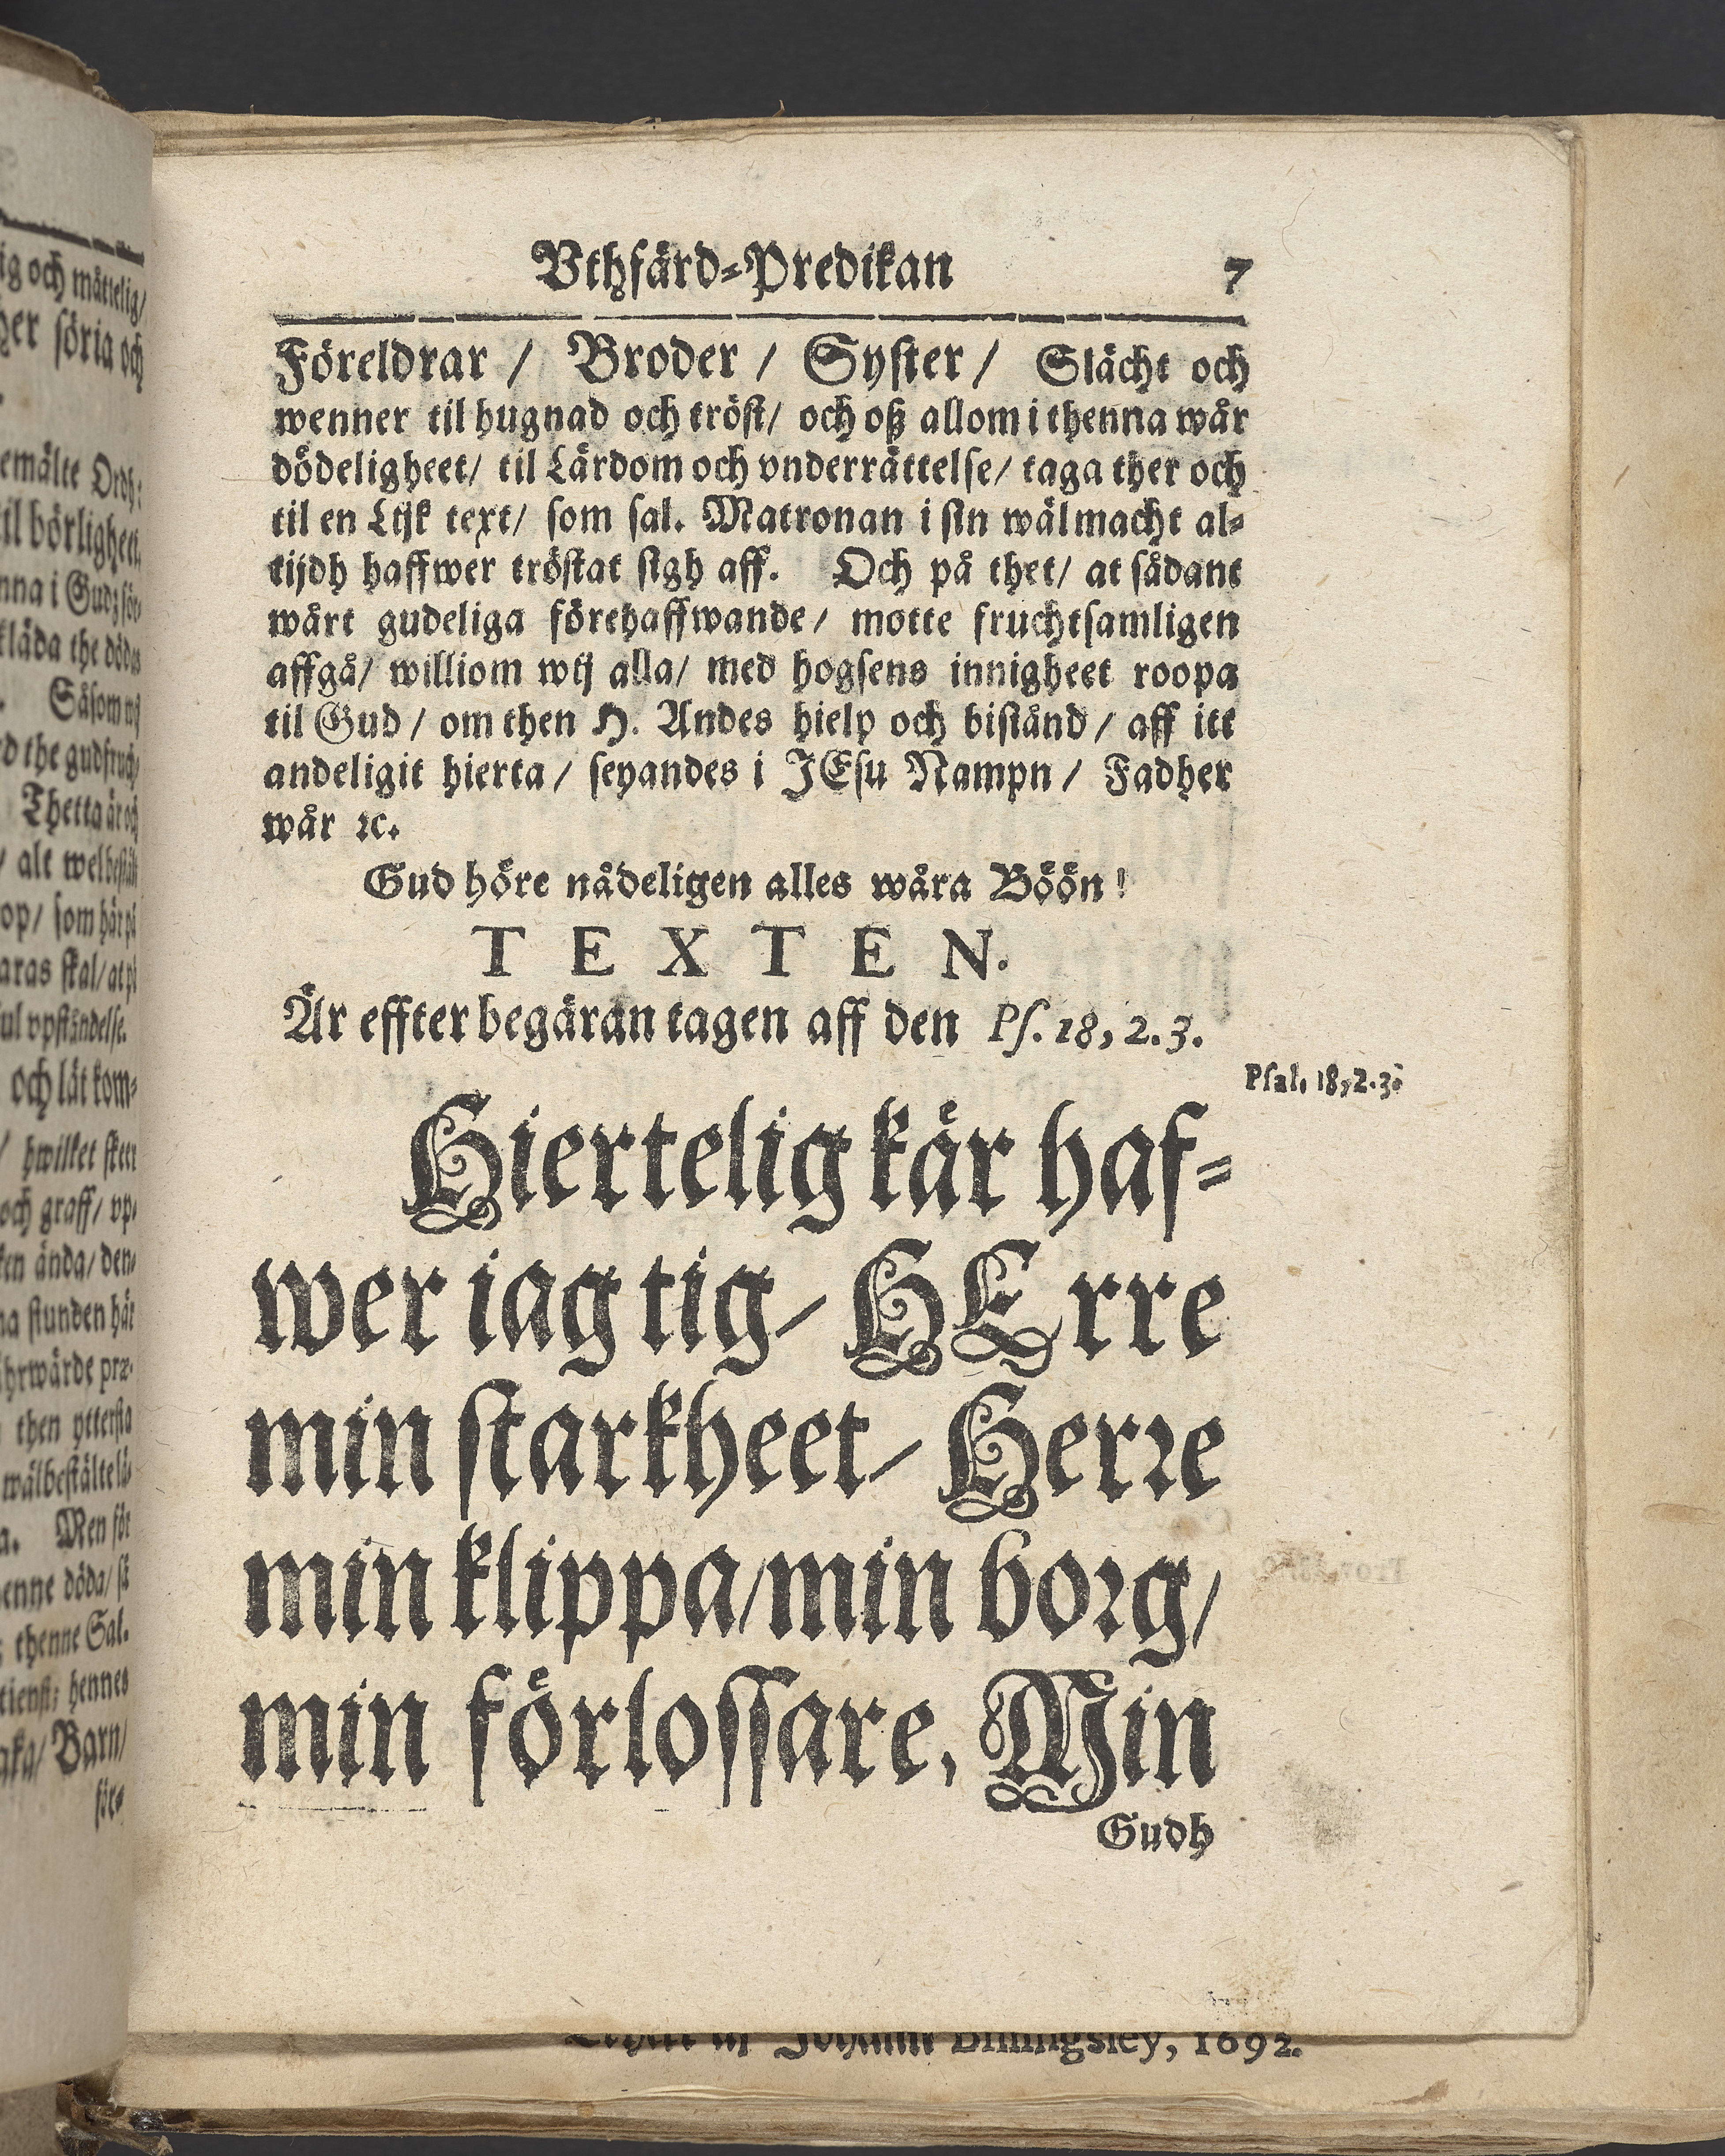 ig och måttelig/
her söria och
emälte Ordh:
til börligheet
kläda the döda
Såsom wij
Thetta är och
alt welbestält
op/ som här på
aras skal/ at på
vpståndelse.
och låt kom-
/ hwilket skeer
och graff/ vp-
ken ända/ den-
na stunden här
then ytterſta
wälbeſtälte
a. Men för
henne döda/ så
; thenne Sal.
tienſt; hennes
aka/ Barn/
för-
Vthfärd-Predikan 7
Föreldrar / Broder / Syſter / Slächt och
wenner til hugnad och tröſt/ och oß allom i thenna wår
dödeligheet/ til Lärdom och vnderrättelſe/ taga ther och
til en Lijk text/ ſom ſal. Matronan i ſin wälmacht al-
tijdh haffwer tröſtat ſigh aff. Och på thet/ at ſådant
wårt gudeliga förehaffwande/ motte fruchtſamligen
affgå/ williom wij alla/ med hogſens innigheet roopa
til Gud / om then H. Andes hielp och biſtånd / aff itt
andeligit hierta / ſeyandes i JEſu Nampn / Fadher
wår ꝛc.
Gud höre nådeligen alles wåra Böön!
TEXTEN.
Är effter begäran tagen aff den Pſ. 18, 2. 3.
Pſal. 18, 2. 3.
Hiertelig kär haf-
wer iag tig/ HErre
min ſtarkheet/ Herꝛe
min klippa/ min boꝛg/
min förloſſare, Min
Gudh
Johann Billingsley, 1692.